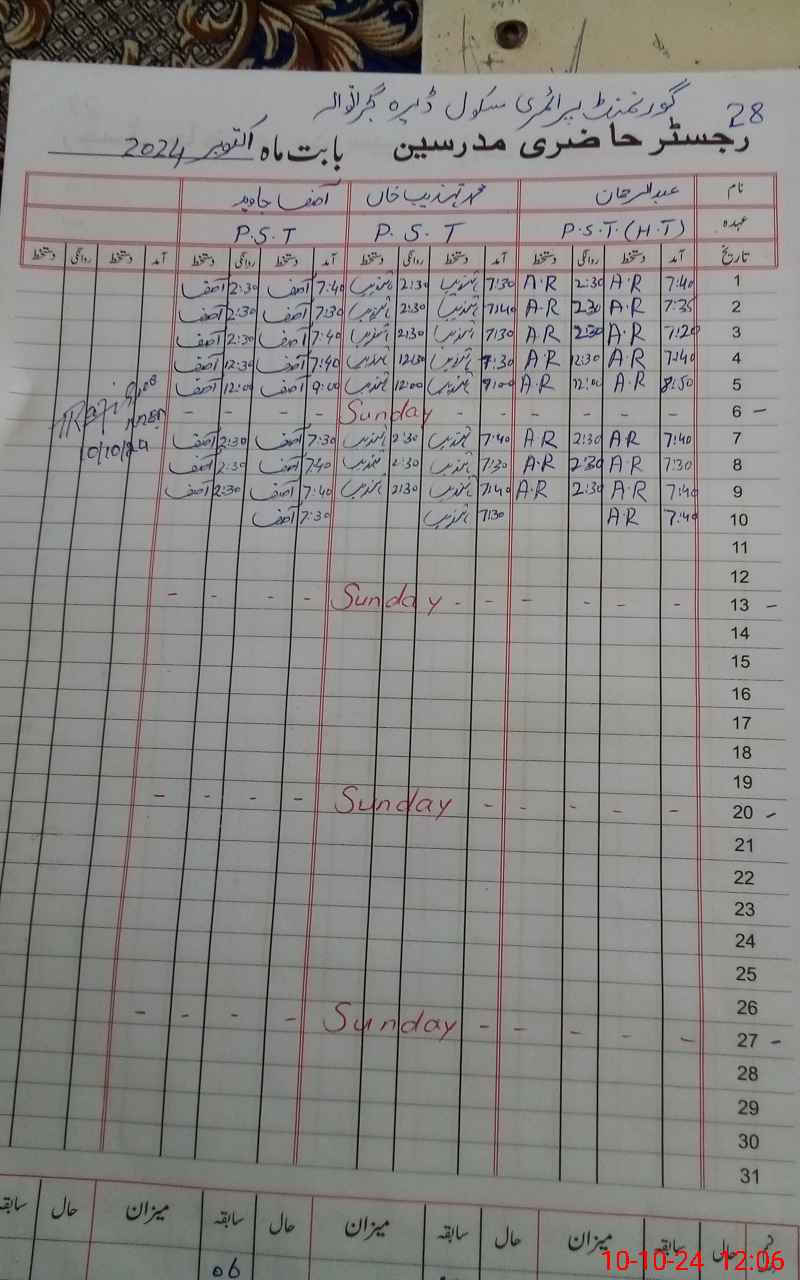 28 گورنمنٹ پرائمری سکول ڈیرہ گجرانوالہ
رجسٹر حاضری مدرسین بابت ماہ اکتوبر 2024
نام عبدالرحمان محمد تہذیب خاں آصف جاوید
عہدہ P.S.T.(H.T) P.S.T P.S.T
تاریخ آمد دستخط روانگی دستخط آمد دستخط روانگی دستخط آمد دستخط روانگی دستخط آمد دستخط روانگی دستخط
1 7:40 A.R 2:30 A.R 7:30 تہذیب 2:30 تہذیب 7:40 آصف 2:30 آصف
2 7:35 A.R 2:30 A.R 7:40 تہذیب 2:30 تہذیب 7:30 آصف 2:30 آصف
3 7:20 A.R 2:30 A.R 7:30 تہذیب 2:30 تہذیب 7:40 آصف 2:30 آصف
4 7:40 A.R 12:30 A.R 7:30 تہذیب 12:30 تہذیب 7:40 آصف 12:30 آصف
5 8:50 A.R 12:00 A.R 9:00 تہذیب 12:00 تہذیب 9:00 آصف 12:00 آصف
6 - - - - - - Sunday - - - -
7 7:40 A.R 2:30 A.R 7:40 تہذیب 2:30 تہذیب 7:30 آصف 2:30 آصف
10/10/24
8 7:30 A.R 2:30 A.R 7:30 تہذیب 2:30 تہذیب 7:40 آصف 2:30 آصف
9 7:40 A.R 2:30 A.R 7:40 تہذیب 2:30 تہذیب 7:40 آصف 2:30 آصف
10 7:40 A.R 7:30 تہذیب 7:30 آصف
11
12
13 - - - - - - - Sunday - - - -
14
15
16
17
18
19
20 - - - - - - Sunday - - - -
21
22
23
24
25
26
27 - - - - - - Sunday - - - -
28
29
30
31
حال سابقہ میزان حال سابقہ میزان حال سابقہ میزان حال سابقہ
06
10-10-24 12:06